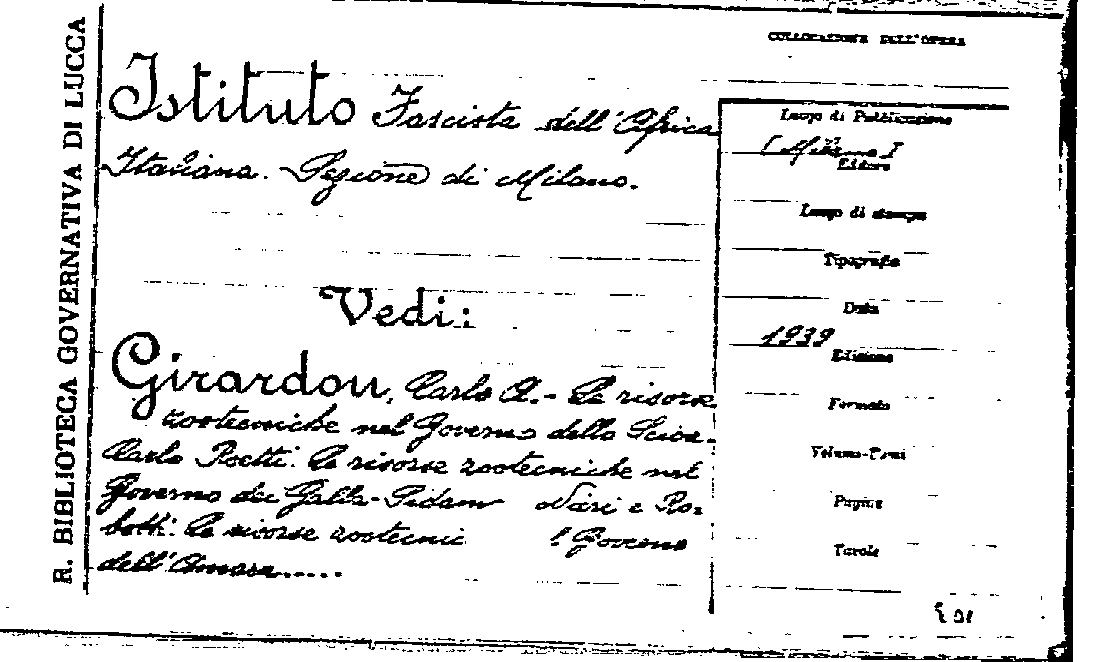 R. BIBLIOTECA GOVERNATIVA DI LUCCA
Istituto Fascista dell'Africa
Italiana. Sezione di Milano.
Vedi:
Girardon, Carlo A. - Le risorse
zootecniche nel Governo dello Scioa.
Carlo Roetti: Le risorse zootecniche nel
Governo dei Galla-Sidamo
Le risorse zootecnic l Governo
dell'Amara......
COLLOCAZIONE DELL'OPERA
Luogo di Pubblicazione
[Milano]
Editore
Luogo di stampa
Tipografia
Data
1939
Edizione
Formato
Volume-Tomi
Pagine
Tavole